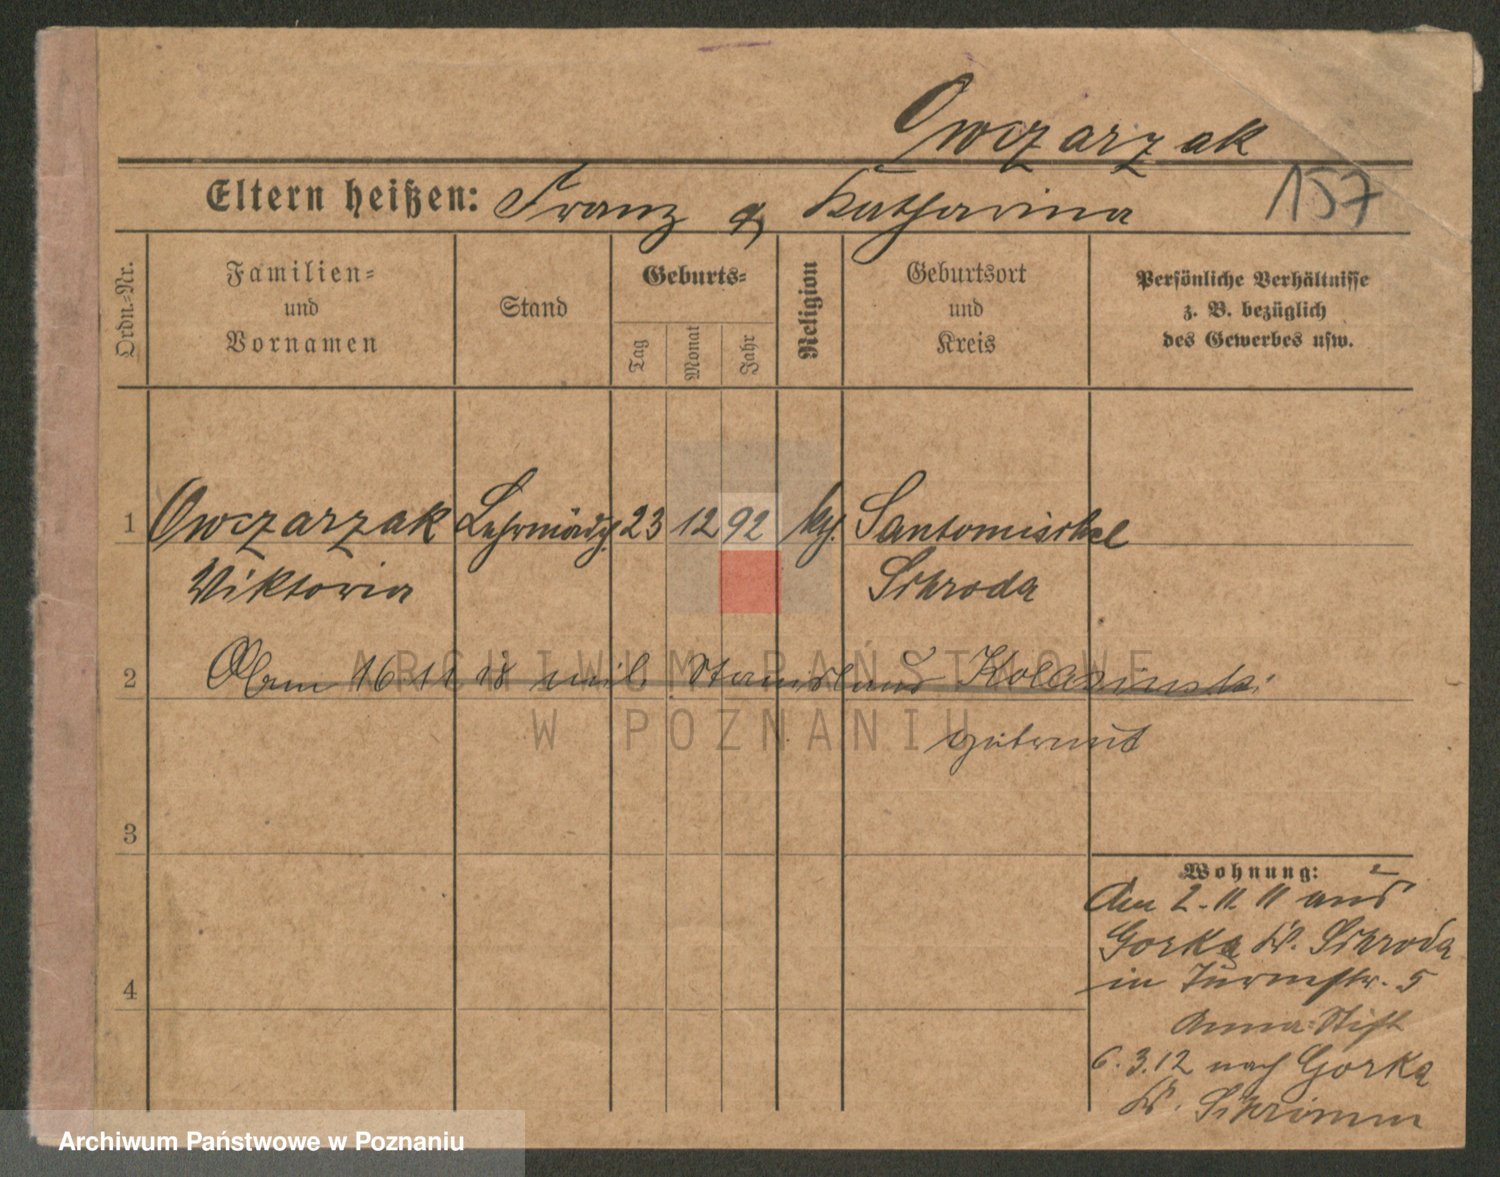 Owczarzak
Eltern heißen: Franz & Katharina
157
Ordn.-Nr.
Familien-
und
Vornamen
Stand
Geburts-
Tag
Monat
Jahr
Religion
Geburtsort
und
Kreis
Persönliche Verhältnisse
z. B. bezüglich
des Gewerbes usw.
1 Owczarzak Lehrmädch. 23 12 92 kth. Santomischel
Viktoria Schroda
2 am 16 11 18 mit Stanislaus Kolasinski
getraut
3
4
Wohnung:
Am 2.11.11 aus
Gorka Kr. Schroda
in Turmstr. 5
Anna-Stift
6.3.12 nach Gorka
Kr. Schrimm
ARCHIWUM PAŃSTWOWE
W POZNANIU
Archiwum Państwowe w Poznaniu